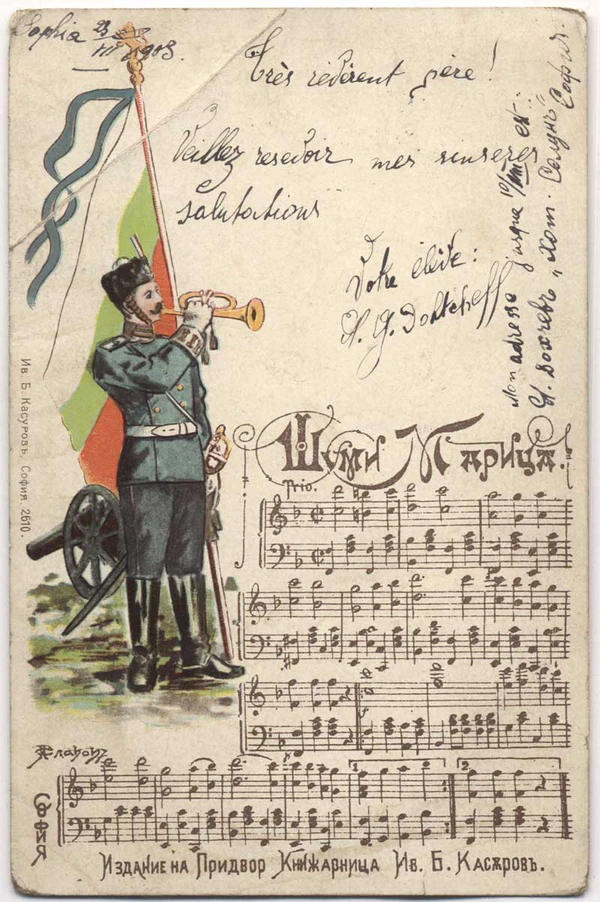 Sophia 23
VII 1903.
Très révérent père!
Veillez resevoir mes senseres
salutations
Votre élève:
H. G. Doltcheff
Mon adresse jusque 10/VIII est:
Н. Дохчевъ „Хот. Солунъ" София.
Ив. Б. Касуровъ. София. 2610.
Шуми Марица.
Trio.
1 2
София
Издание на Придвор Книжарница Ив. Б. Касѫровъ.